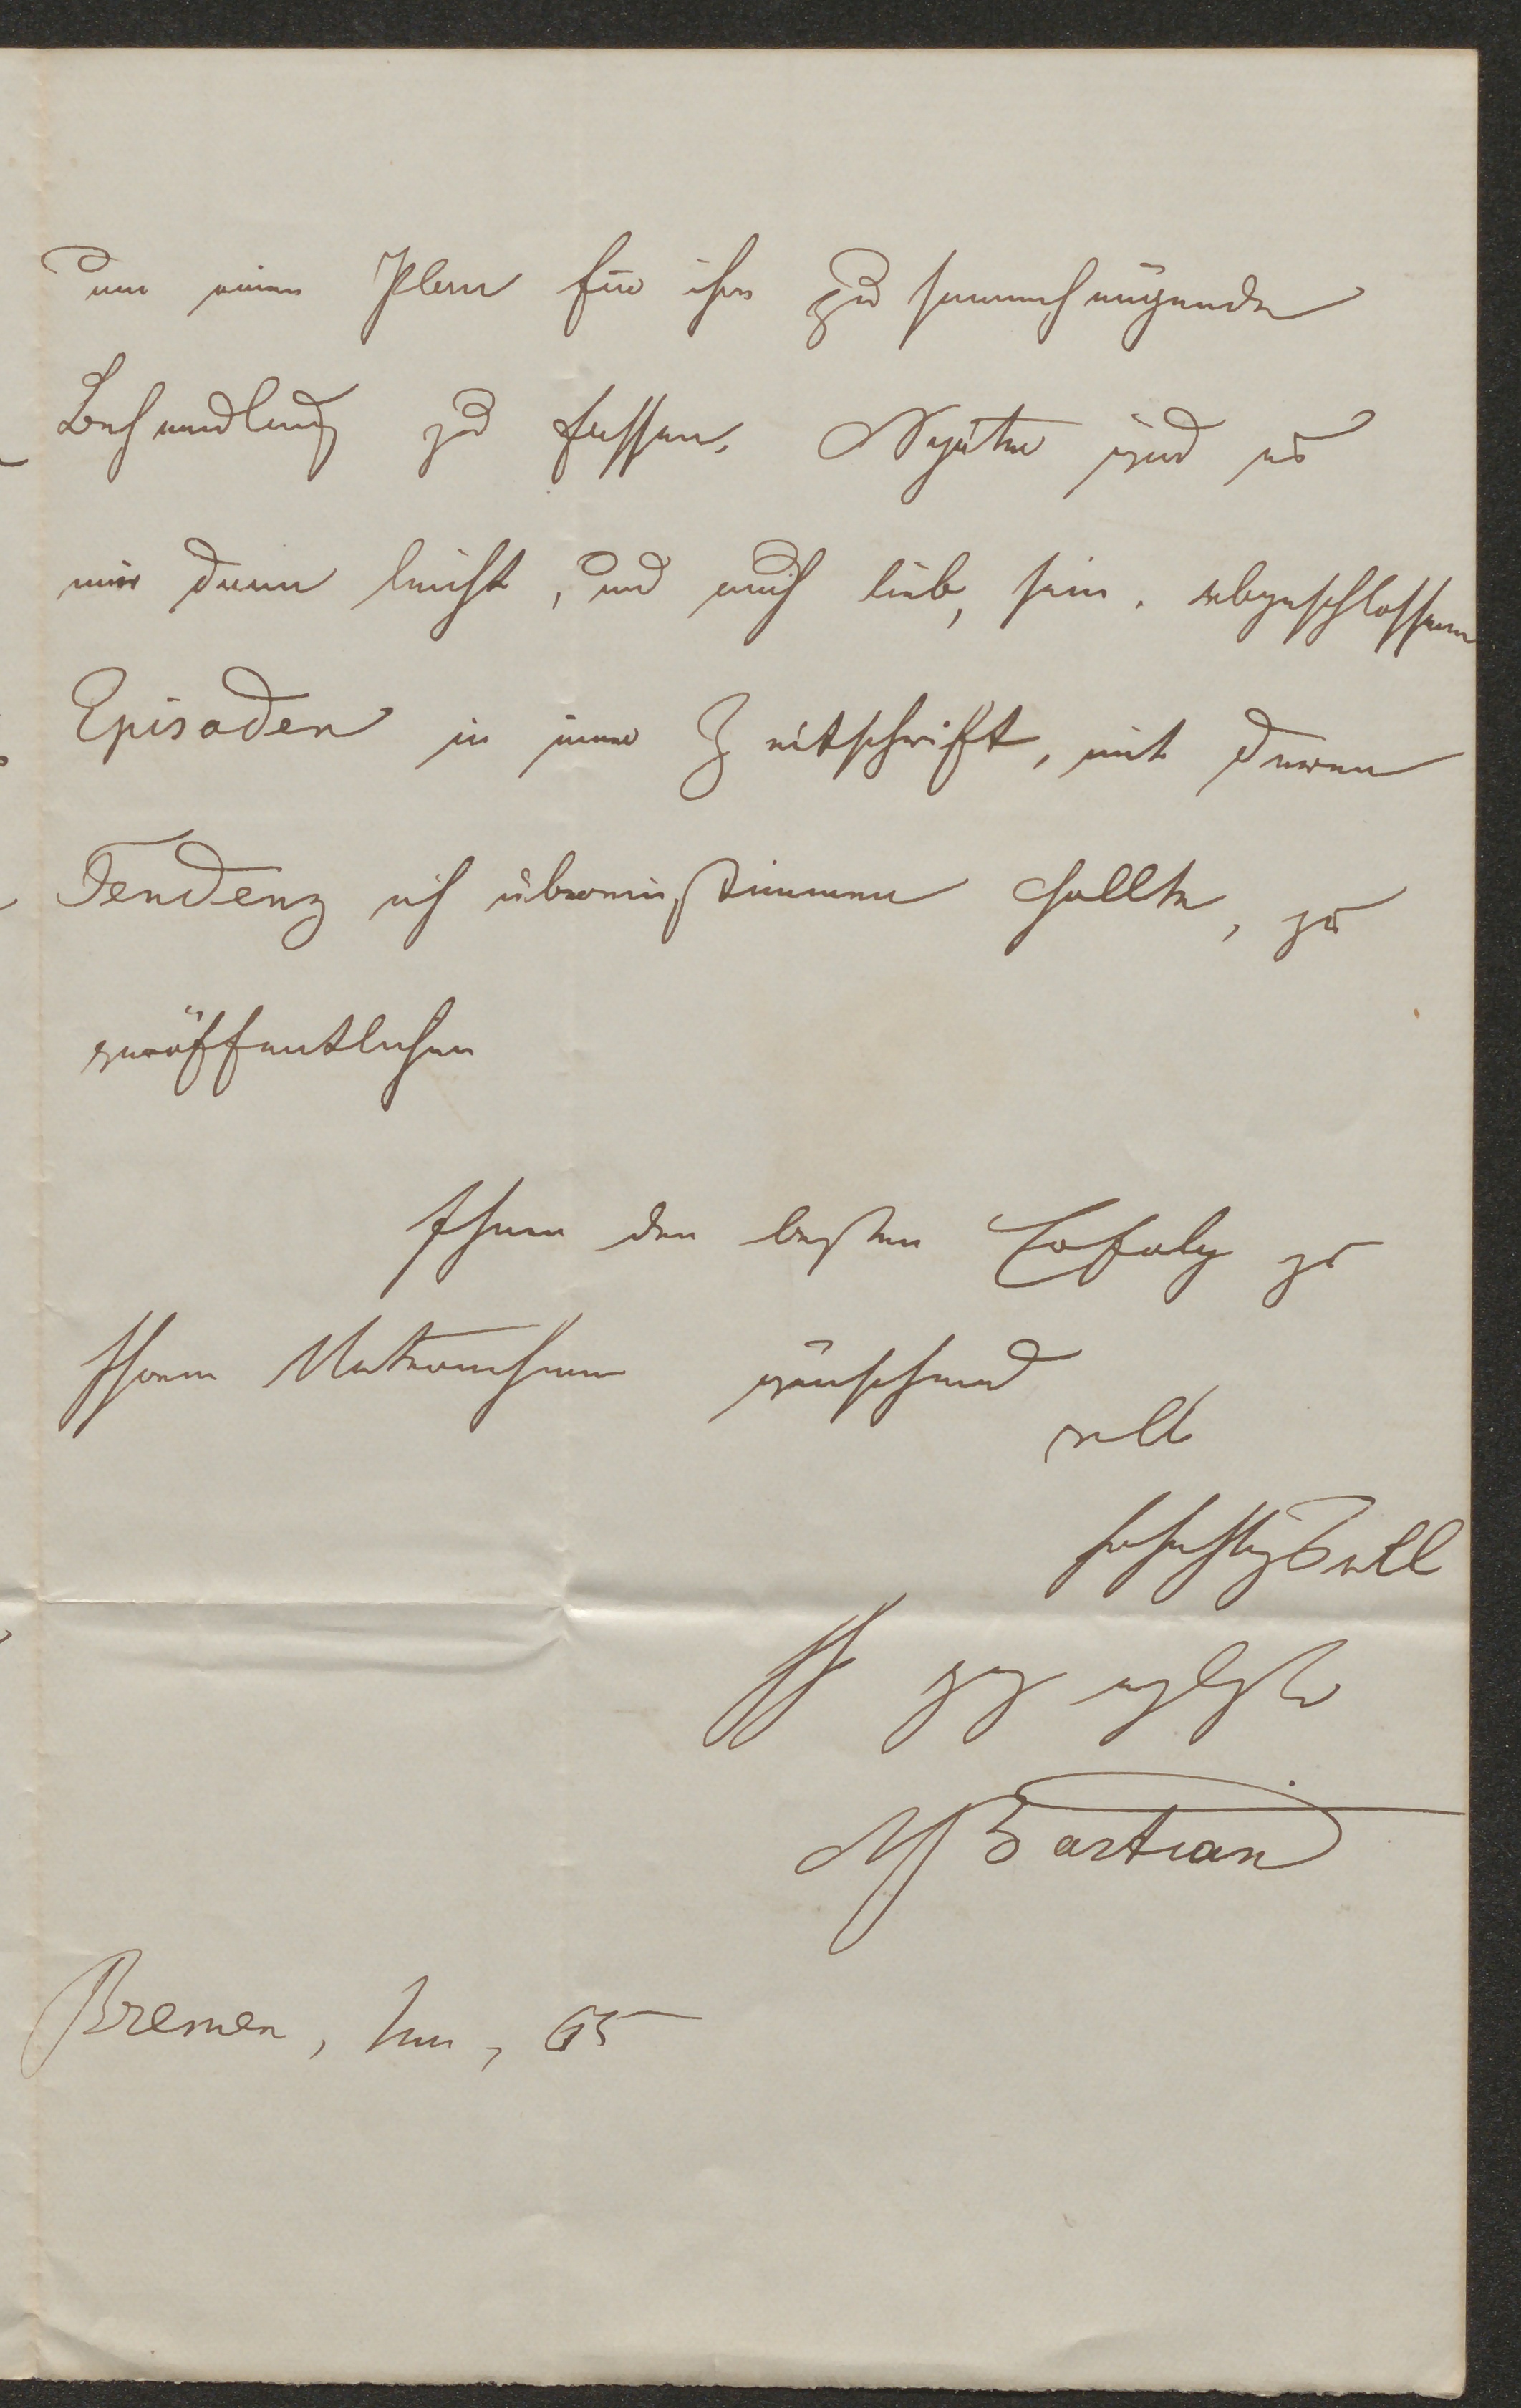 um einen Plan für ihre zusammenhängende
Behandlung zu fassen. Später wird es
mir dann leicht, und auch lieb, sein, abgeschlossene
Episoden in einer Zeitschrift, mit deren
Tendenz ich übereinstimmen sollte, zu
veröffentlichen
Ihnen den besten Erfolg zu
Ihrem Unternehmen wünschend
hochachtungsvoll
Ihr
ABastian
Bremen, 65